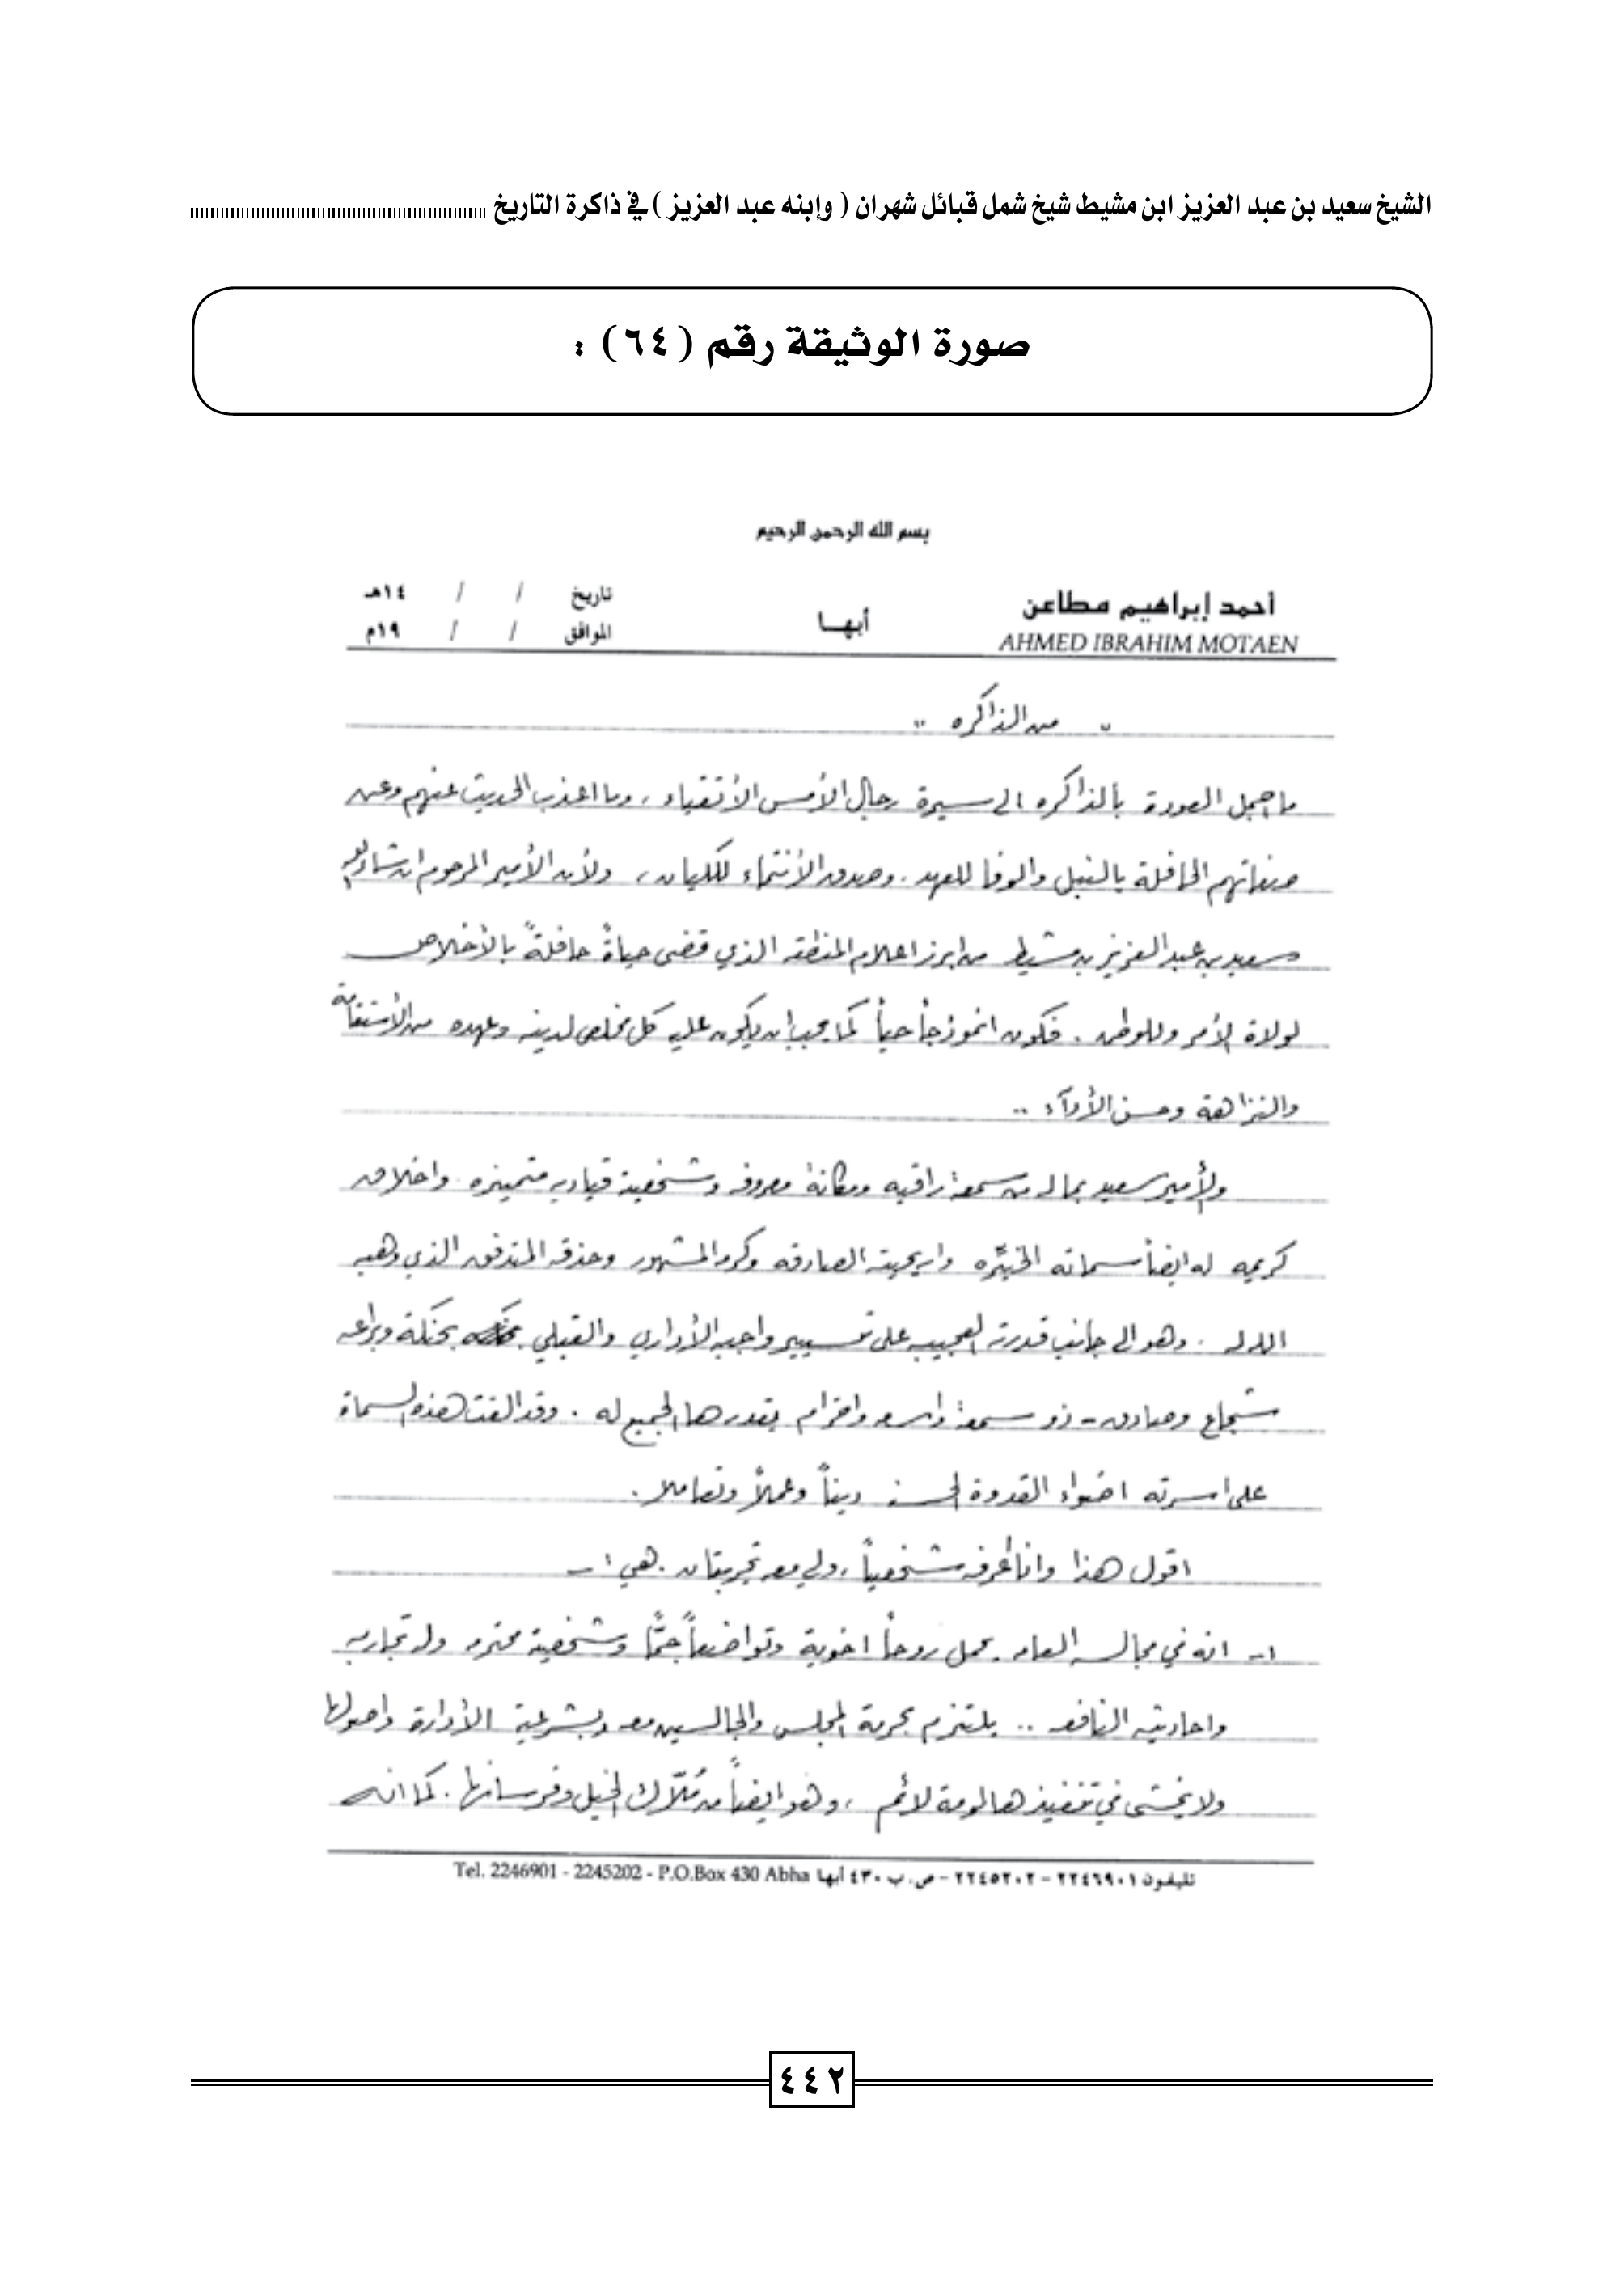 الشيخ سعيد بن عبد العزيز ابن مشيط شيخ شمل قبائل شهران ( وإبنه عبد العزيز ) في ذاكرة التاريخ
صورة الوثيقة رقم ( ٦٤ ) :
بسم الله الرحمن الرحيم
أحمد إبراهيم مطاعن
AHMED IBRAHIM MOTAEN
أبهـا
تاريخ / / ١٤هـ
الموافق / / ١٩م
" من الذاكره "
ما اجمل العودة بالذاكره الى سيرة رجال الأمس الأتقياء ، وما اعذب الحديث عنهم وعن
صفاتهم الحافلة بالنبل والوفا للعهد . وصدق الأنتماء للكيان ، ولأن الأمير المرحوم ان شاء الله
سعيد بن عبد العزيز بن مشيط من ابرز اعلام المنطقه الذي قضى حياةً حافلةً بالأخلاص
لولاة الأمر وللوطن . فكون انموذجاً حياً كما يجب ان يكون عليه كل مخلص لدينه وعهده من الأستقامة
والنزاهة وحسن الأدآء ..
ولأمير سعيد بماله من سمعة راقيه ومكانة معروفه وشخصية قياديه متميزه . واخلاق
كريمه له ايضاً سماته الخيّره واريحيته الصادقه وكرمه المشهور وحذقه المتدفق الذي وهبه
الله له . وهو الى جانب قدرته العجيبه على تسيير واجبه الأداري والقبلي بحنكة وبراعه
شجاع وصادق - ذو سمعة واسعه واحترام يقدرها الجميع له . وقد الفت هذه السماة
على اسرته اضواء القدوة الحسنه ديناً وعملاً وتعاملا .
اقول هذا وانا أعرفه شخصياً ، ولي معه تجربتان . هي :-
١- انه في مجالسه العامه يحمل روحاً اخوية وتواضعاً جمّاً وشخصية محترمه وله تجاربه
واحاديثه النافعه .. يلتزم بحرمة المجلس والجالسين معه وبشرعية الأدارة واصولها
ولا يخشى في تنفيذها لومة لائم ، وهو ايضاً من مُلّاك الخيل وفرسانها . كما انه
تليفون ٢٢٤٦٩٠١ - ٢٢٤٥٢٠٢ - ص.ب ٤٣٠ أبها Tel. 2246901 - 2245202 - P.O.Box 430 Abha
٤٤٢